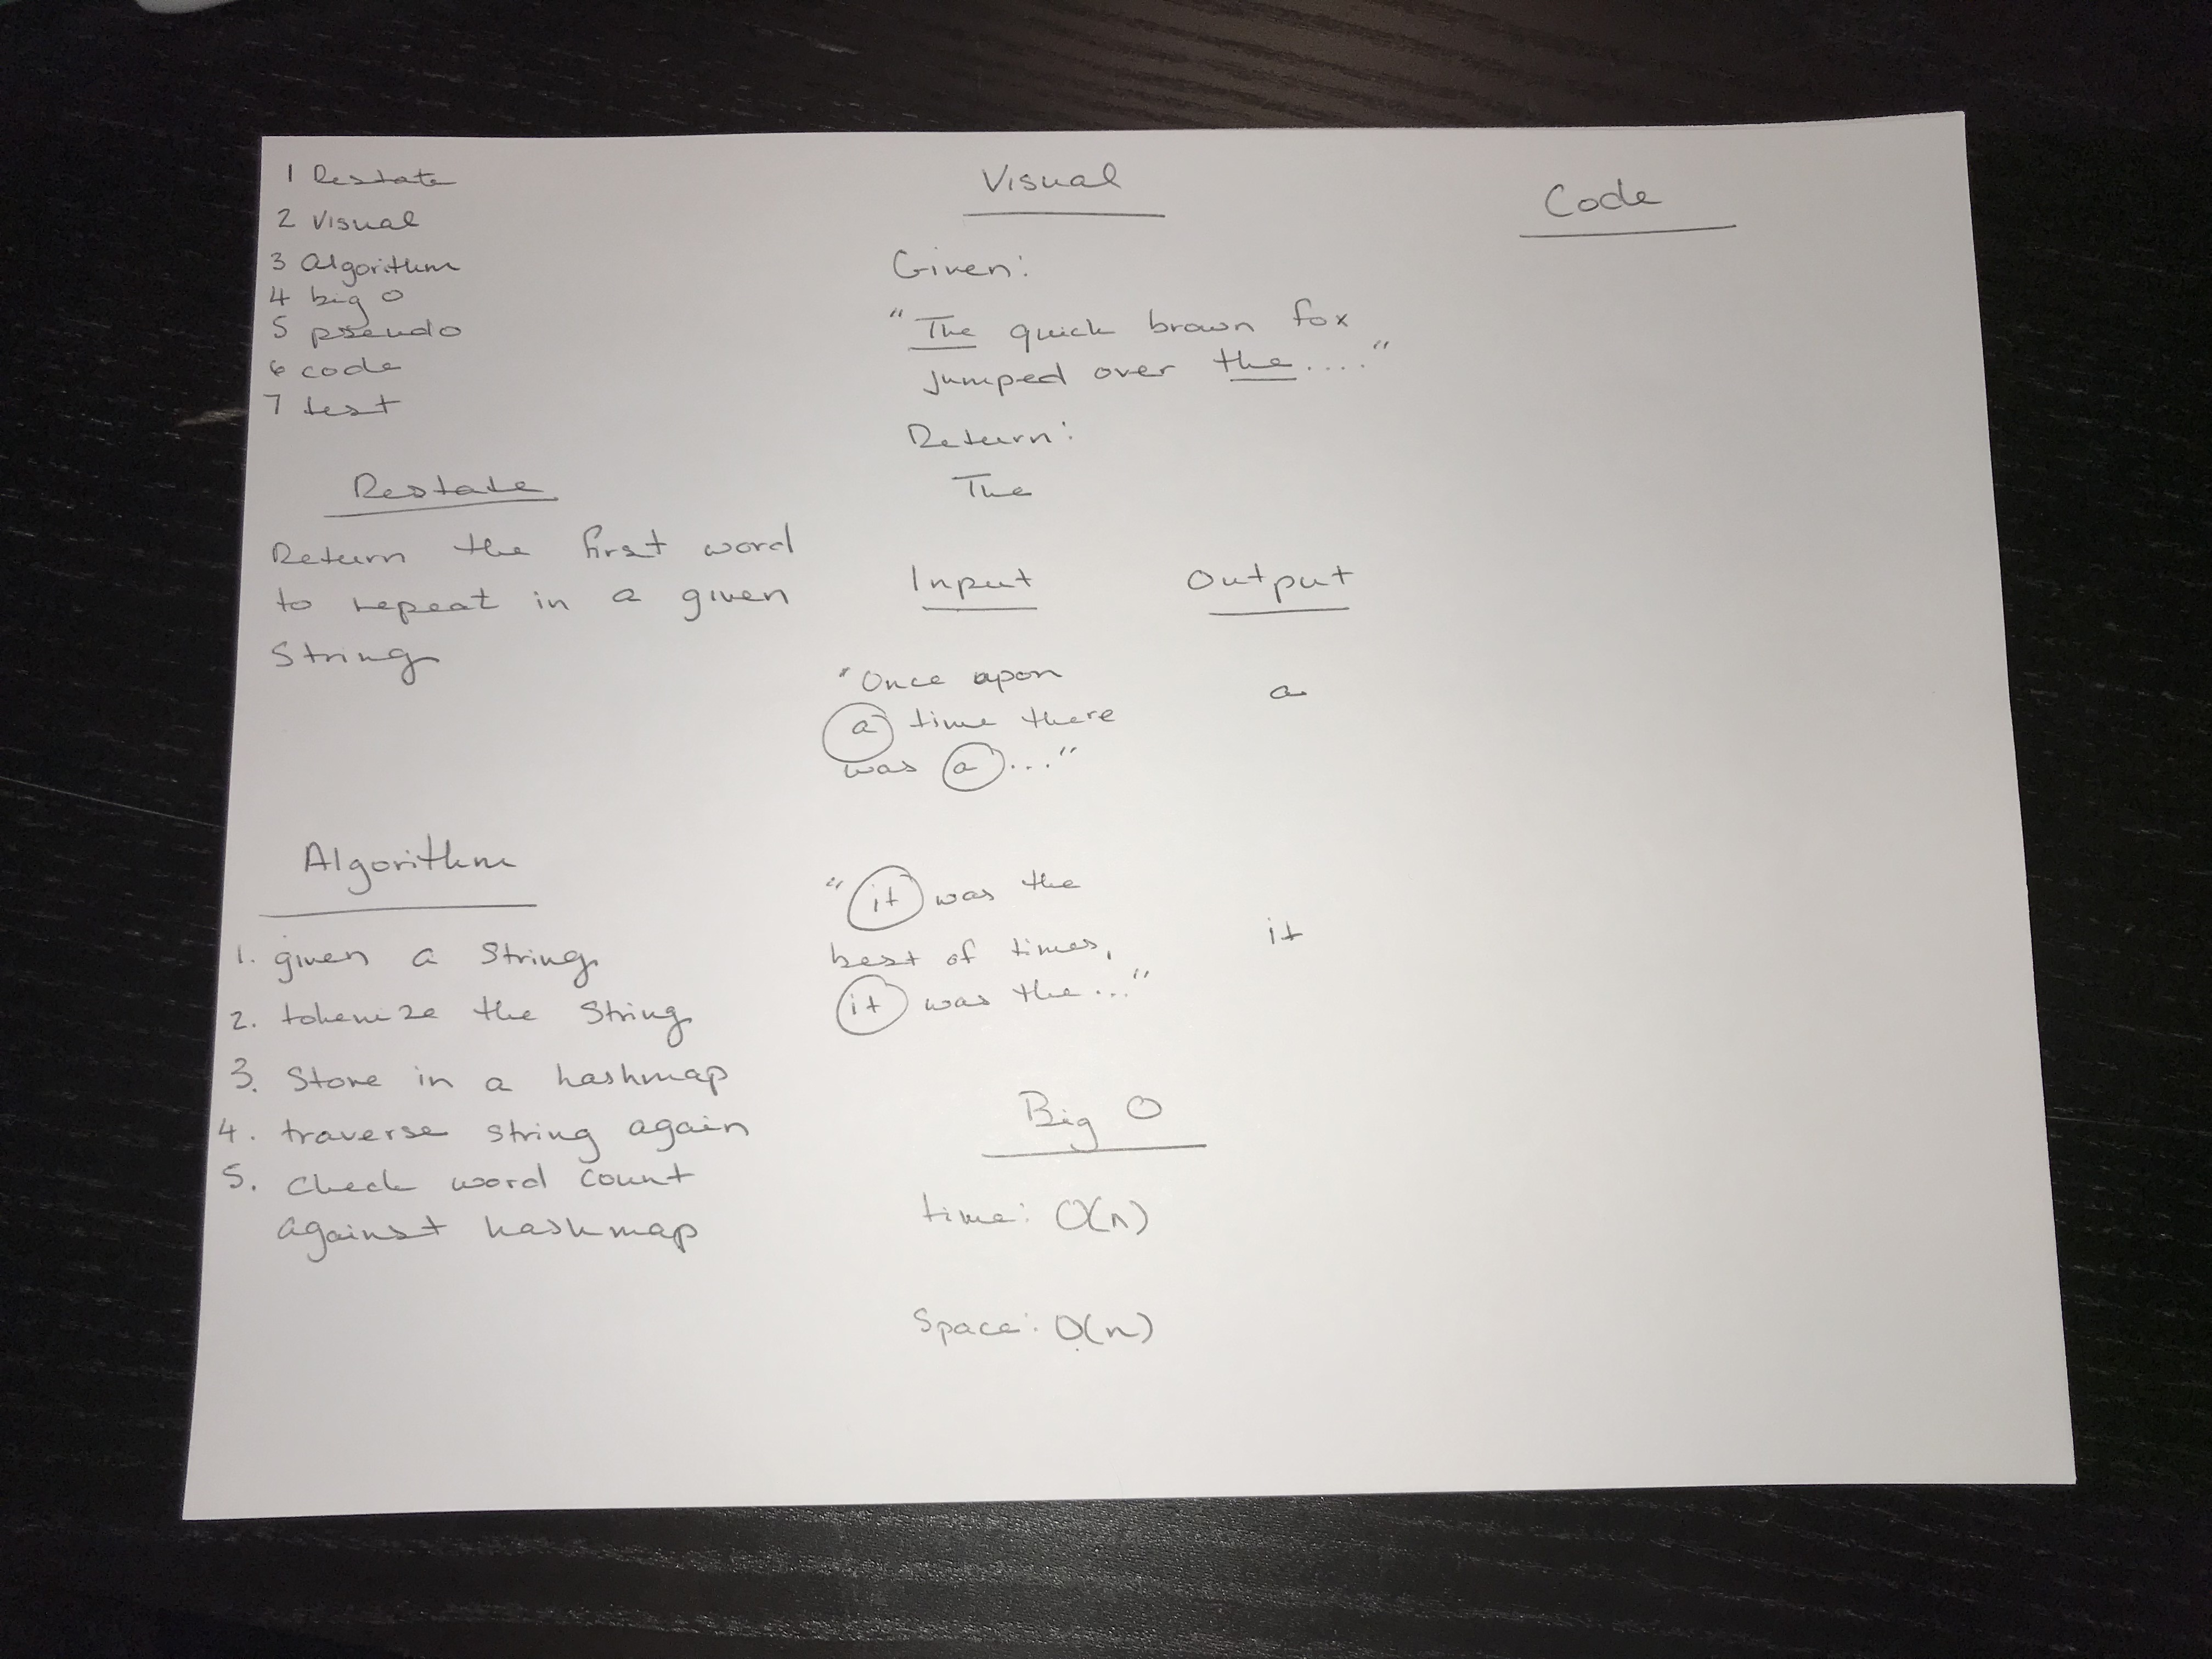 1 Restate
2 Visual
3 Algorithm
4 big O
5 pseudo
6 code
7 test
Restate
Return the first word
to repeat in a given
String
Algorithm
1. given a string
2. tokenize the string
3. Store in a hashmap
4. traverse string again
5. check word count
against hashmap
Visual
Given:
"The quick brown fox
jumped over the...."
Return:
The
Input Output
"Once upon
a time there a
was a..."
"it was the
best of times, it
it was the..."
Big O
time: O(n)
Space: O(n)
Code